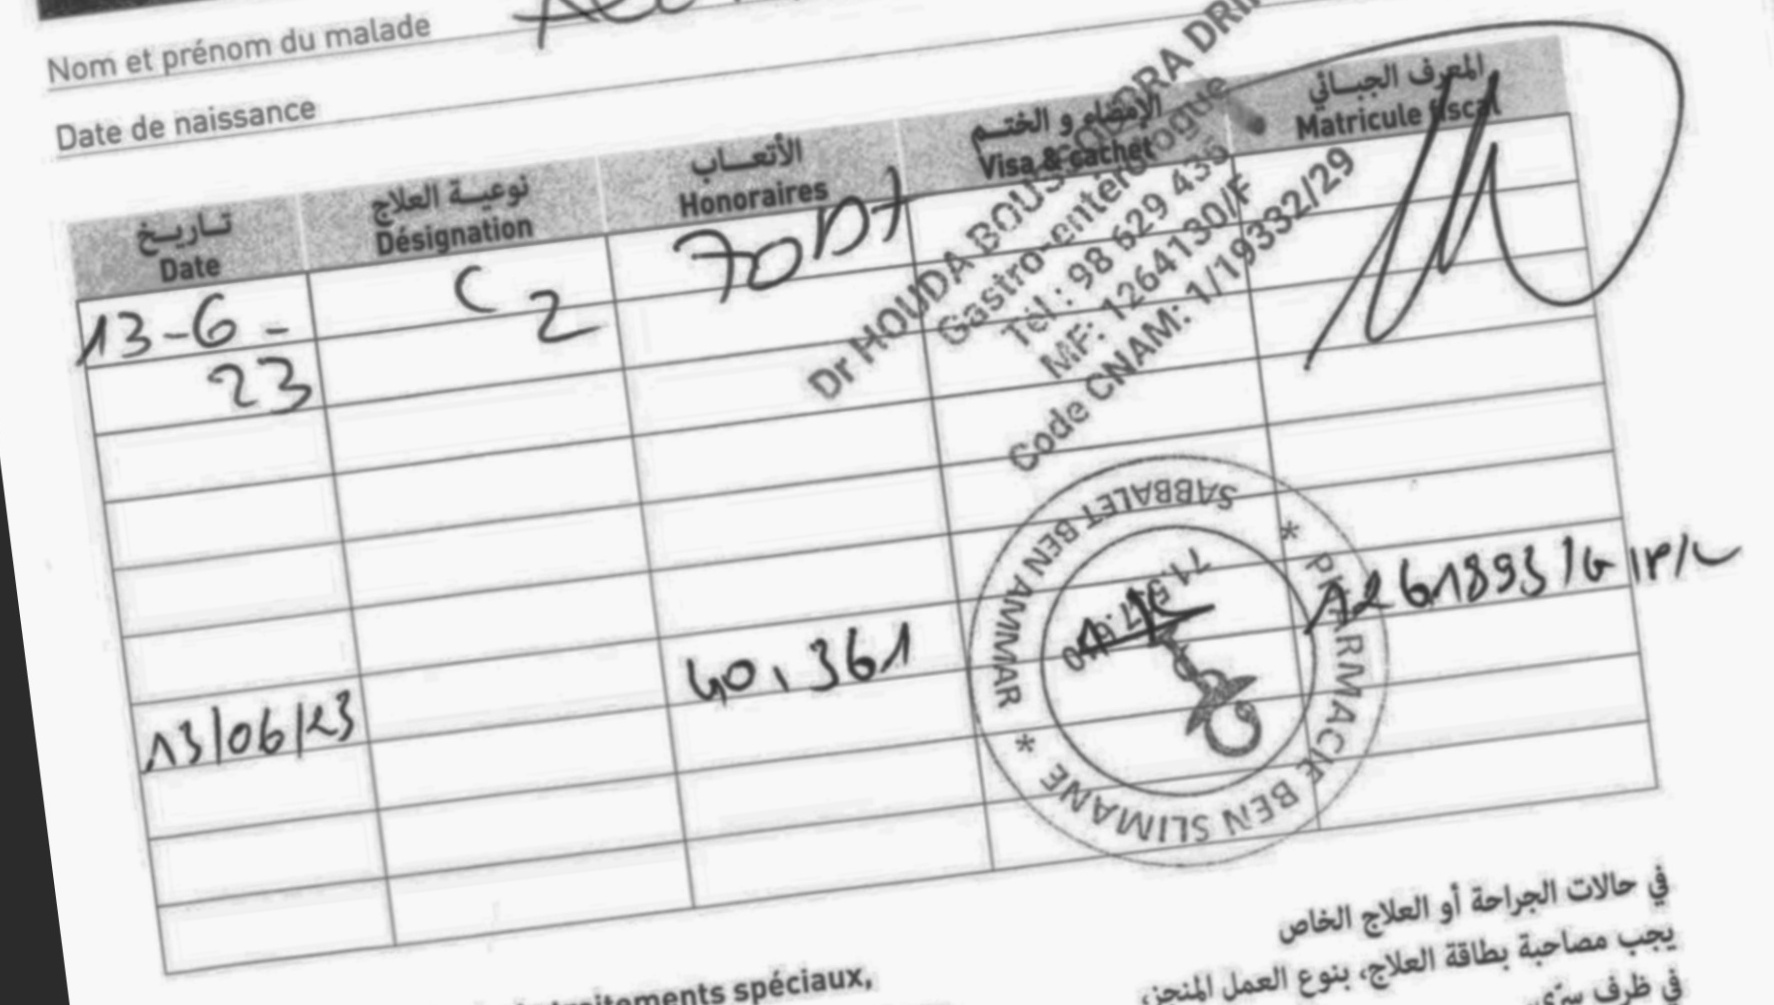 Nom et prénom du malade
Date de naissance
تاريخ
Date
نوعية العلاج
Désignation
الأتعاب
Honoraires
الإمضاء و الختم
Visa & cachet
المعرف الجبائي
Matricule fiscal
13-6-
23
C2
70Dt
Dr HOUDA
Gastro-entérologue
Tél : 98 629 436
MF: 1264130/F
Code CNAM: 1/19332/29
13/06/23
40,361
* PHARMACIE BEN SLIMANE *
SABBALET BEN AMMAR
1261893/G
في حالات الجراحة أو العلاج الخاص
يجب مصاحبة بطاقة العلاج، بنوع العمل المنجز،
في ظرف سري
traitements spéciaux,